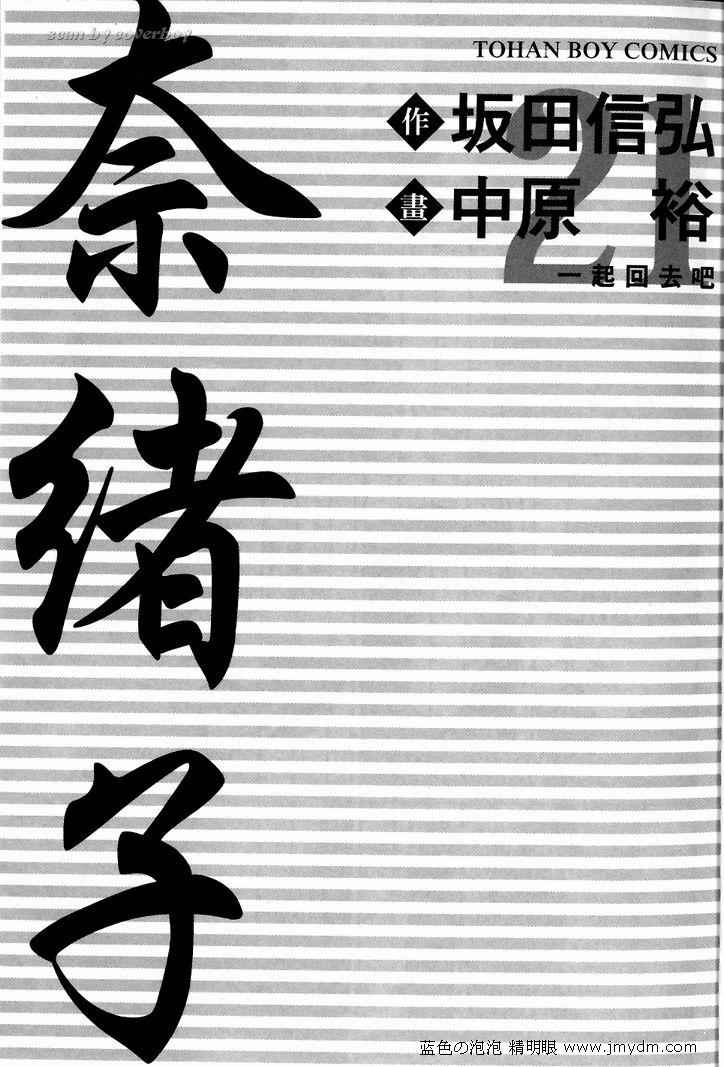 scan by coverboy
TOHAN BOY COMICS
21
作 坂田信弘
畫 中原 裕
一起回去吧
奈緒子
蓝色の泡泡 精明眼 www.jmydm.com